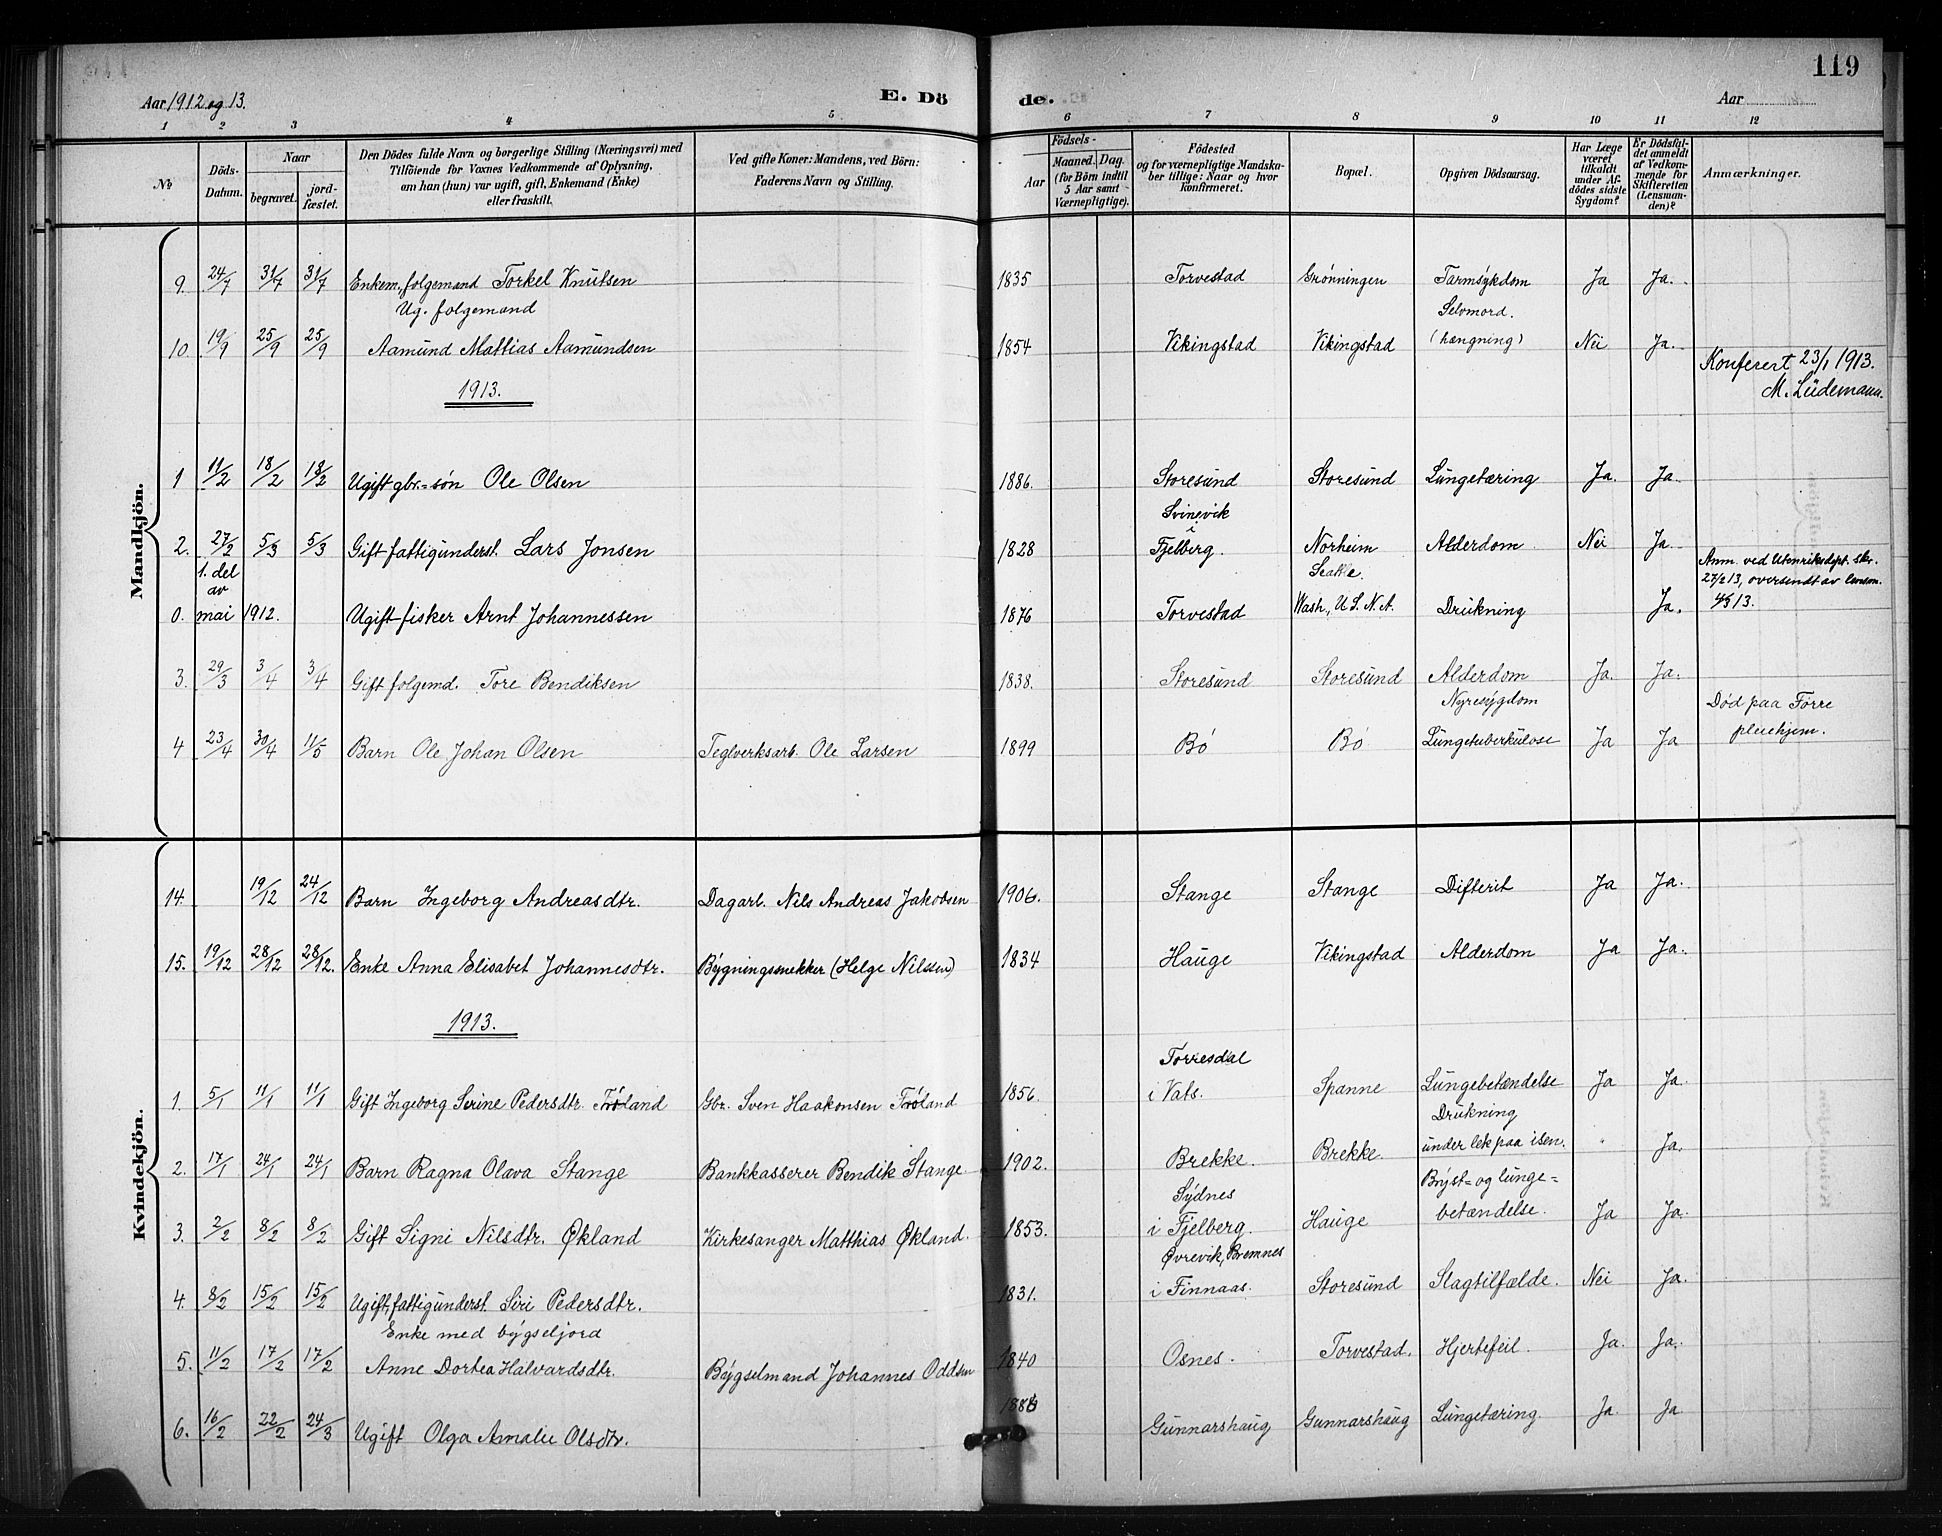 119
Aar 1912 og 13.
E. Dö de.
Aar
1 2 3 4 5 6 7 8 9 10 11 12
No
Döds-Datum.
Naar
begravet.
jord-fæstet.
Den Dödes fulde Navn og borgerlige Stilling (Næringsvei) med
Tilföiende for Voxnes Vedkommende af Oplysning,
om han (hun) var ugift, gift, Enkemand (Enke)
eller fraskilt.
Ved gifte Koner: Mandens, ved Börn:
Faderens Navn og Stilling.
Födsels-
Aar
Maaned. Dag.
(for Börn indtil
5 Aar samt
Værnepligtige).
Födested
og for værnepligtige Mandska-
ber tillige: Naar og hvor
konfirmeret.
Bopæl.
Opgiven Dödsaarsag.
Har Læge
været
tilkaldt
under Af-
dödes sidste
Sygdom?
Er Dödsfal-
det anmeldt
af Vedkom-
mende for
Skifteretten
(Lensman-
den)?
Anmærkninger.
Mandkjön.
9. 24/7 31/7 31/7 Enkem, folgemand Torkel Knutsen 1835 Torvestad Grønningen Tarmsykdom Ja Ja.
Ug. folgemand Selvmord.
10 19/9 25/9 25/9 Aamund Mattias Aamundsen 1854 Vikingstad Vikingstad (hængning) Nei Ja.
Konferert 23/1 1913.
M. Lüdemann.
1913.
1 11/2 18/2 18/2 Ugift gbr.=søn Ole Olsen 1886. Storesund Storesund Lungetæring Ja. Ja.
Svinevik
i
2. 27/2 5/3 5/3 Gift fattigunderst. Lars Jonsen 1828 Fjelberg. Norheim Alderdom Nei Ja.
1. del
av
Seattle.
Anm. ved Utenriksdept. skr.
27/2 13, oversendt av lensm.
4/3 13.
0. mai 1912. Ugift fisker Arnt Johannessen 1876 Torvestad Wash., U.S.N.A. Drukning Ja.
3. 29/3 3/4 3/4 Gift folgemd. Tore Bendiksen 1838. Storesund Storesund Alderdom Ja. Ja.
Nyresygdom
Død paa Førre
pleiehjem.
4 23/4 30/4 11/5 Barn Ole Johan Olsen Teglverksarb. Ole Larsen 1899 Bø Bø Lungetuberkulose Ja Ja
Kvindekjön.
14. 19/12 24/12 Barn Ingeborg Andreasdtr. Dagarb. Nils Andreas Jakobsen 1906. Stange Stange Difterit Ja Ja.
15. 19/12 28/12 28/12. Enke Anna Elisabet Johannesdtr. Bygningssnekker (Helge Nilssen) 1834 Hauge Vikingstad Alderdom Ja Ja.
1913.
Torresdal
1. 5/1 11/1 11/1 Gift Ingeborg Serine Pedersdtr. Frøland Gbr. Sven Haakonsen Frøland 1856. i Vats. Spanne Lungebetændelse Ja Ja.
Drukning
2. 17/1 24/1 24/1 Barn Ragna Olava Stange Bankkasserer Bendik Stange 1902. Brekke. Brekke. under lek paa isen. " Ja.
Sydnes Bryst= og lunge=
3. 2/2 8/2 8/2 Gift Signi Nilsdtr. Økland Kirkesanger Matthias Økland. 1853. i Fjelberg. Hauge betændelse. Ja Ja.
Øvrevik, Bremnes
4. 8/2 15/2 15/2 Ugift, fattigunderst. Siri Pedersdtr. 1831. i Finnaas. Storesund Slagtilfælde. Nei Ja.
Enke med bygseljord
5. 11/2 17/2 17/2 Anne Dortea Halvardsdtr. Bygselmand Johannes Oddsen 1840 Osnes. Torvestad. Hjertefeil. Ja. Ja.
6. 16/2 22/2 24/3 Ugift Olga Amalie Olsdtr. Gunnarshaug Gunnarshaug Lungetæring. Ja. Ja